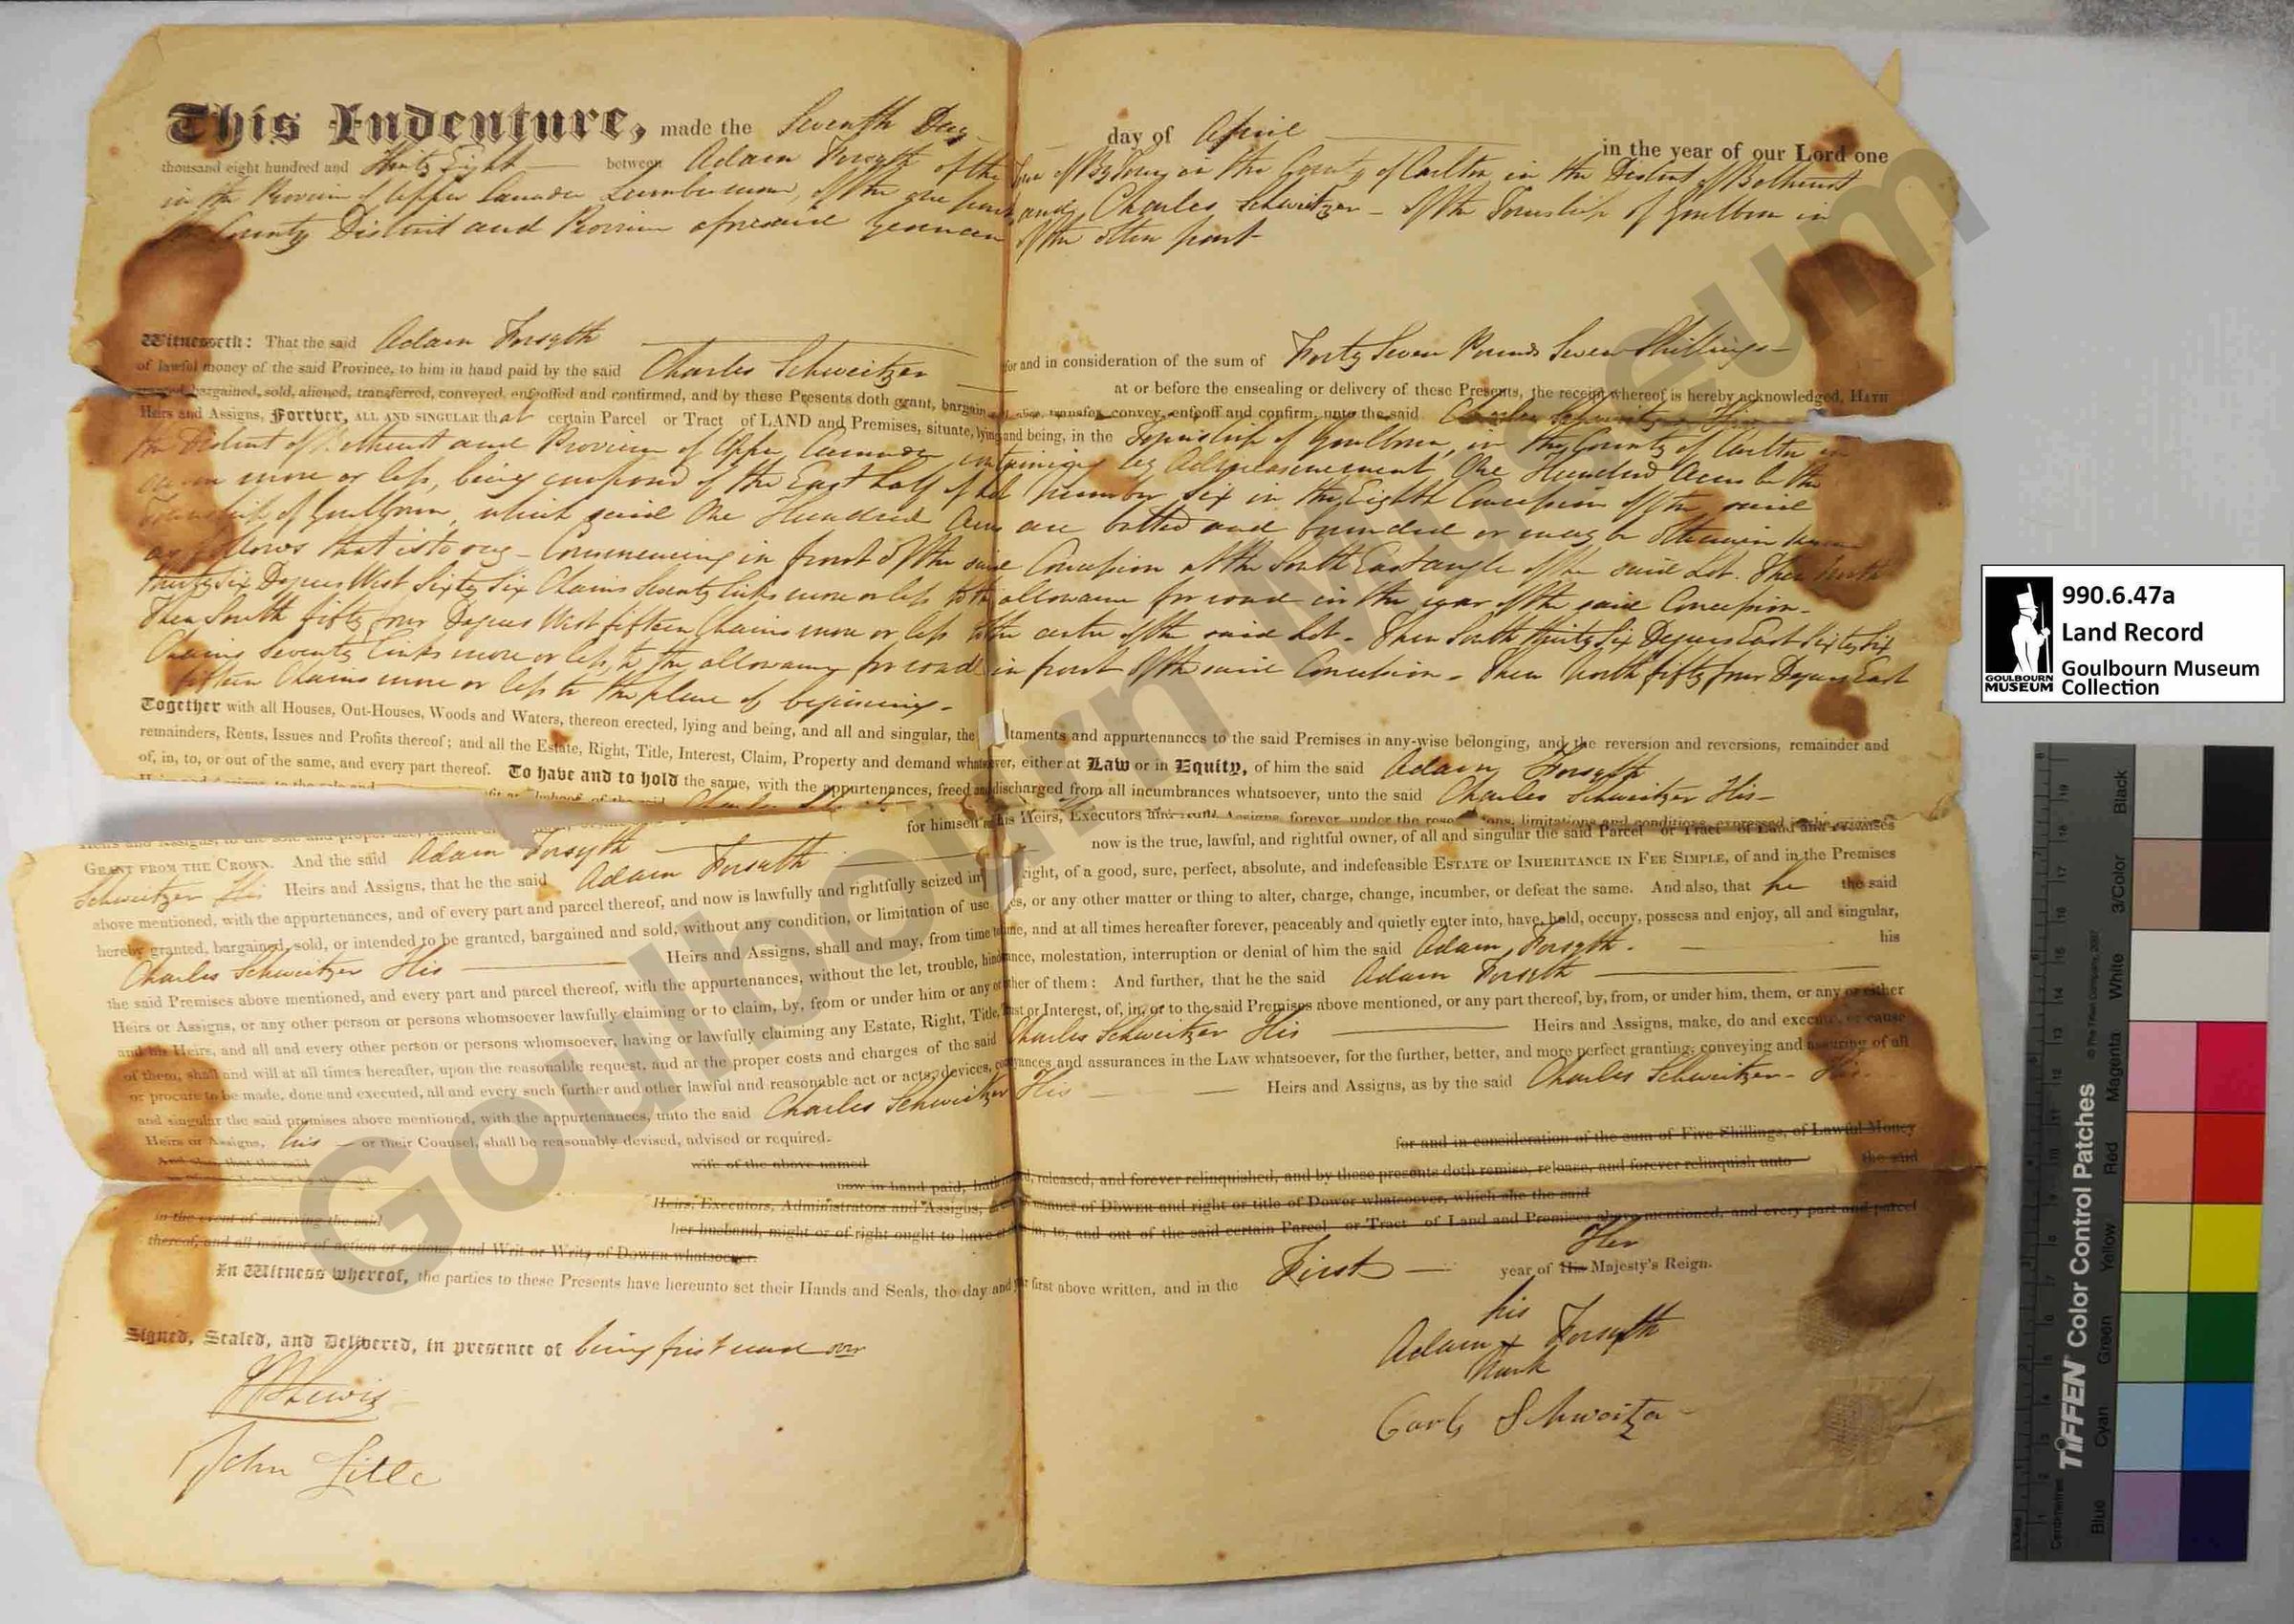 This Indenture, made the Seventh Day day of April in the year of our Lord one
thousand eight hundred and Thirty Eight between Adam Forsyth of the Town of By Town in the County of Carlton in the District of Bathurst
in the Province of Upper Canada Lumberman, of the one part and Charles Schweitzer of the Township of Goulbourn in
the County District and Province aforesaid Yeoman of the other part
Witnesseth: That the said Adam Forsyth for and in consideration of the sum of Forty Seven Pounds Seven Shillings
of lawful money of the said Province, to him in hand paid by the said Charles Schweitzer at or before the ensealing or delivery of these Presents, the receipt whereof is hereby acknowledged, HATH
bargained, sold, aliened, transferred, conveyed, enfeoffed and confirmed, and by these Presents doth grant, bargain alien, transfer, convey, enfeoff and confirm, unto the said Charles Schweitzer His
Heirs and Assigns, Forever, ALL AND SINGULAR that certain Parcel or Tract of LAND and Premises, situate, lying and being, in the Township of Goulbourn, in the County of Carlton in
the District of Bathurst and Province of Upper Canada containing by Admeasurement One Hundred Acres be the
same more or less, being composed of the East half of Lot Number Six in the Eighth Concession of the said
Township of Goulbourn, which said One Hundred Acres are butted and bounded or may be otherwise known
as follows that is to say - Commencing in front of the said Concession at the South East angle of the said Lot. Then North
thirty Six Degrees West Sixty Six Chains Seventy links more or less to the allowance for road in the rear of the said Concession -
Then South fifty four Degrees West fifteen Chains more or less to the centre of the said Lot - Then South thirty Six Degrees East Sixty Six
Chains Seventy links more or less, to the allowance for road in front of the said Concession - Then North fifty four Degrees East
fifteen Chains more or less to the place of beginning -
Together with all Houses, Out-Houses, Woods and Waters, thereon erected, lying and being, and all and singular, the taments and appurtenances to the said Premises in any-wise belonging, and the reversion and reversions, remainder and
remainders, Rents, Issues and Profits thereof; and all the Estate, Right, Title, Interest, Claim, Property and demand whatsoever, either at Law or in Equity, of him the said Adam Forsyth
of, in, to, or out of the same, and every part thereof. To have and to hold the same, with the appurtenances, freed and discharged from all incumbrances whatsoever, unto the said Charles Schweitzer His
for himself his Heirs, Executors Assigns, forever, under the limitations and conditions, expressed in the original
GRANT FROM THE CROWN. And the said Adam Forsyth now is the true, lawful, and rightful owner, of all and singular the said Parcel or Tract of Land and Premises
Schweitzer His Heirs and Assigns, that he the said Adam Forsyth
above mentioned, with the appurtenances, and of every part and parcel thereof, and now is lawfully and rightfully seized in right, of a good, sure, perfect, absolute, and indefeasible ESTATE OF INHERITANCE IN FEE SIMPLE, of and in the Premises
hereby granted, bargained, sold, or intended to be granted, bargained and sold, without any condition, or limitation of use es, or any other matter or thing to alter, charge, change, incumber, or defeat the same. And also, that he the said
Charles Schweitzer His Heirs and Assigns, shall and may, from time to time, and at all times hereafter forever, peaceably and quietly enter into, have, hold, occupy, possess and enjoy, all and singular,
the said Premises above mentioned, and every part and parcel thereof, with the appurtenances, without the let, trouble, hindrance, molestation, interruption or denial of him the said Adam Forsyth. his
Heirs or Assigns, or any other person or persons whomsoever lawfully claiming or to claim, by, from or under him or any other of them: And further, that he the said Adam Forsyth
and his Heirs, and all and every other person or persons whomsoever, having or lawfully claiming any Estate, Right, Title, Trust or Interest, of, in, or to the said Premises above mentioned, or any part thereof, by, from, or under him, them, or any or either
of them, shall and will at all times hereafter, upon the reasonable request, and at the proper costs and charges of the said Charles Schweitzer His Heirs and Assigns, make, do and execute, or cause
or procure to be made, done and executed, all and every such further and other lawful and reasonable act or acts, devices, conveyances and assurances in the LAW whatsoever, for the further, better, and more perfect granting, conveying and assuring of all
and singular the said premises above mentioned, with the appurtenances, unto the said Charles Schweitzer His Heirs and Assigns, as by the said Charles Schweitzer - His
Heirs or Assigns, his or their Counsel, shall be reasonably devised, advised or required.
And also, that the said wife of the above named for and in consideration of the sum of Five Shillings, of Lawful Money
now in hand paid, hath released, and forever relinquished, and by these presents doth remise, release, and forever relinquish unto the said
Heirs, Executors, Administrators and Assigns, of DOWER and right or title of Dower whatsoever, which she the said
in the event of surviving the said her husband, might or of right ought to have in, to, and out of the said certain Parcel or Tract of Land and Premises above mentioned, and every part and parcel
thereof, and all manner of action or actions, and Writ or Writs of DOWER whatsoever.
In Witness whereof, the parties to these Presents have hereunto set their Hands and Seals, the day and first above written, and in the First year of His Her Majesty's Reign.
Signed, Sealed, and Delivered, in presence of being first read over
Lewis
John Little
his
Adam x Forsyth
Mark
Carl Schweitzer
Goulbourn Museum
990.6.47a
Land Record
Goulbourn Museum
Collection
GOULBOURN
MUSEUM
TIFFEN Color Control Patches
© The Tiffen Company, 2007
Centimetres
Blue
Cyan
Green
Yellow
Red
Magenta
White
3/Color
Black